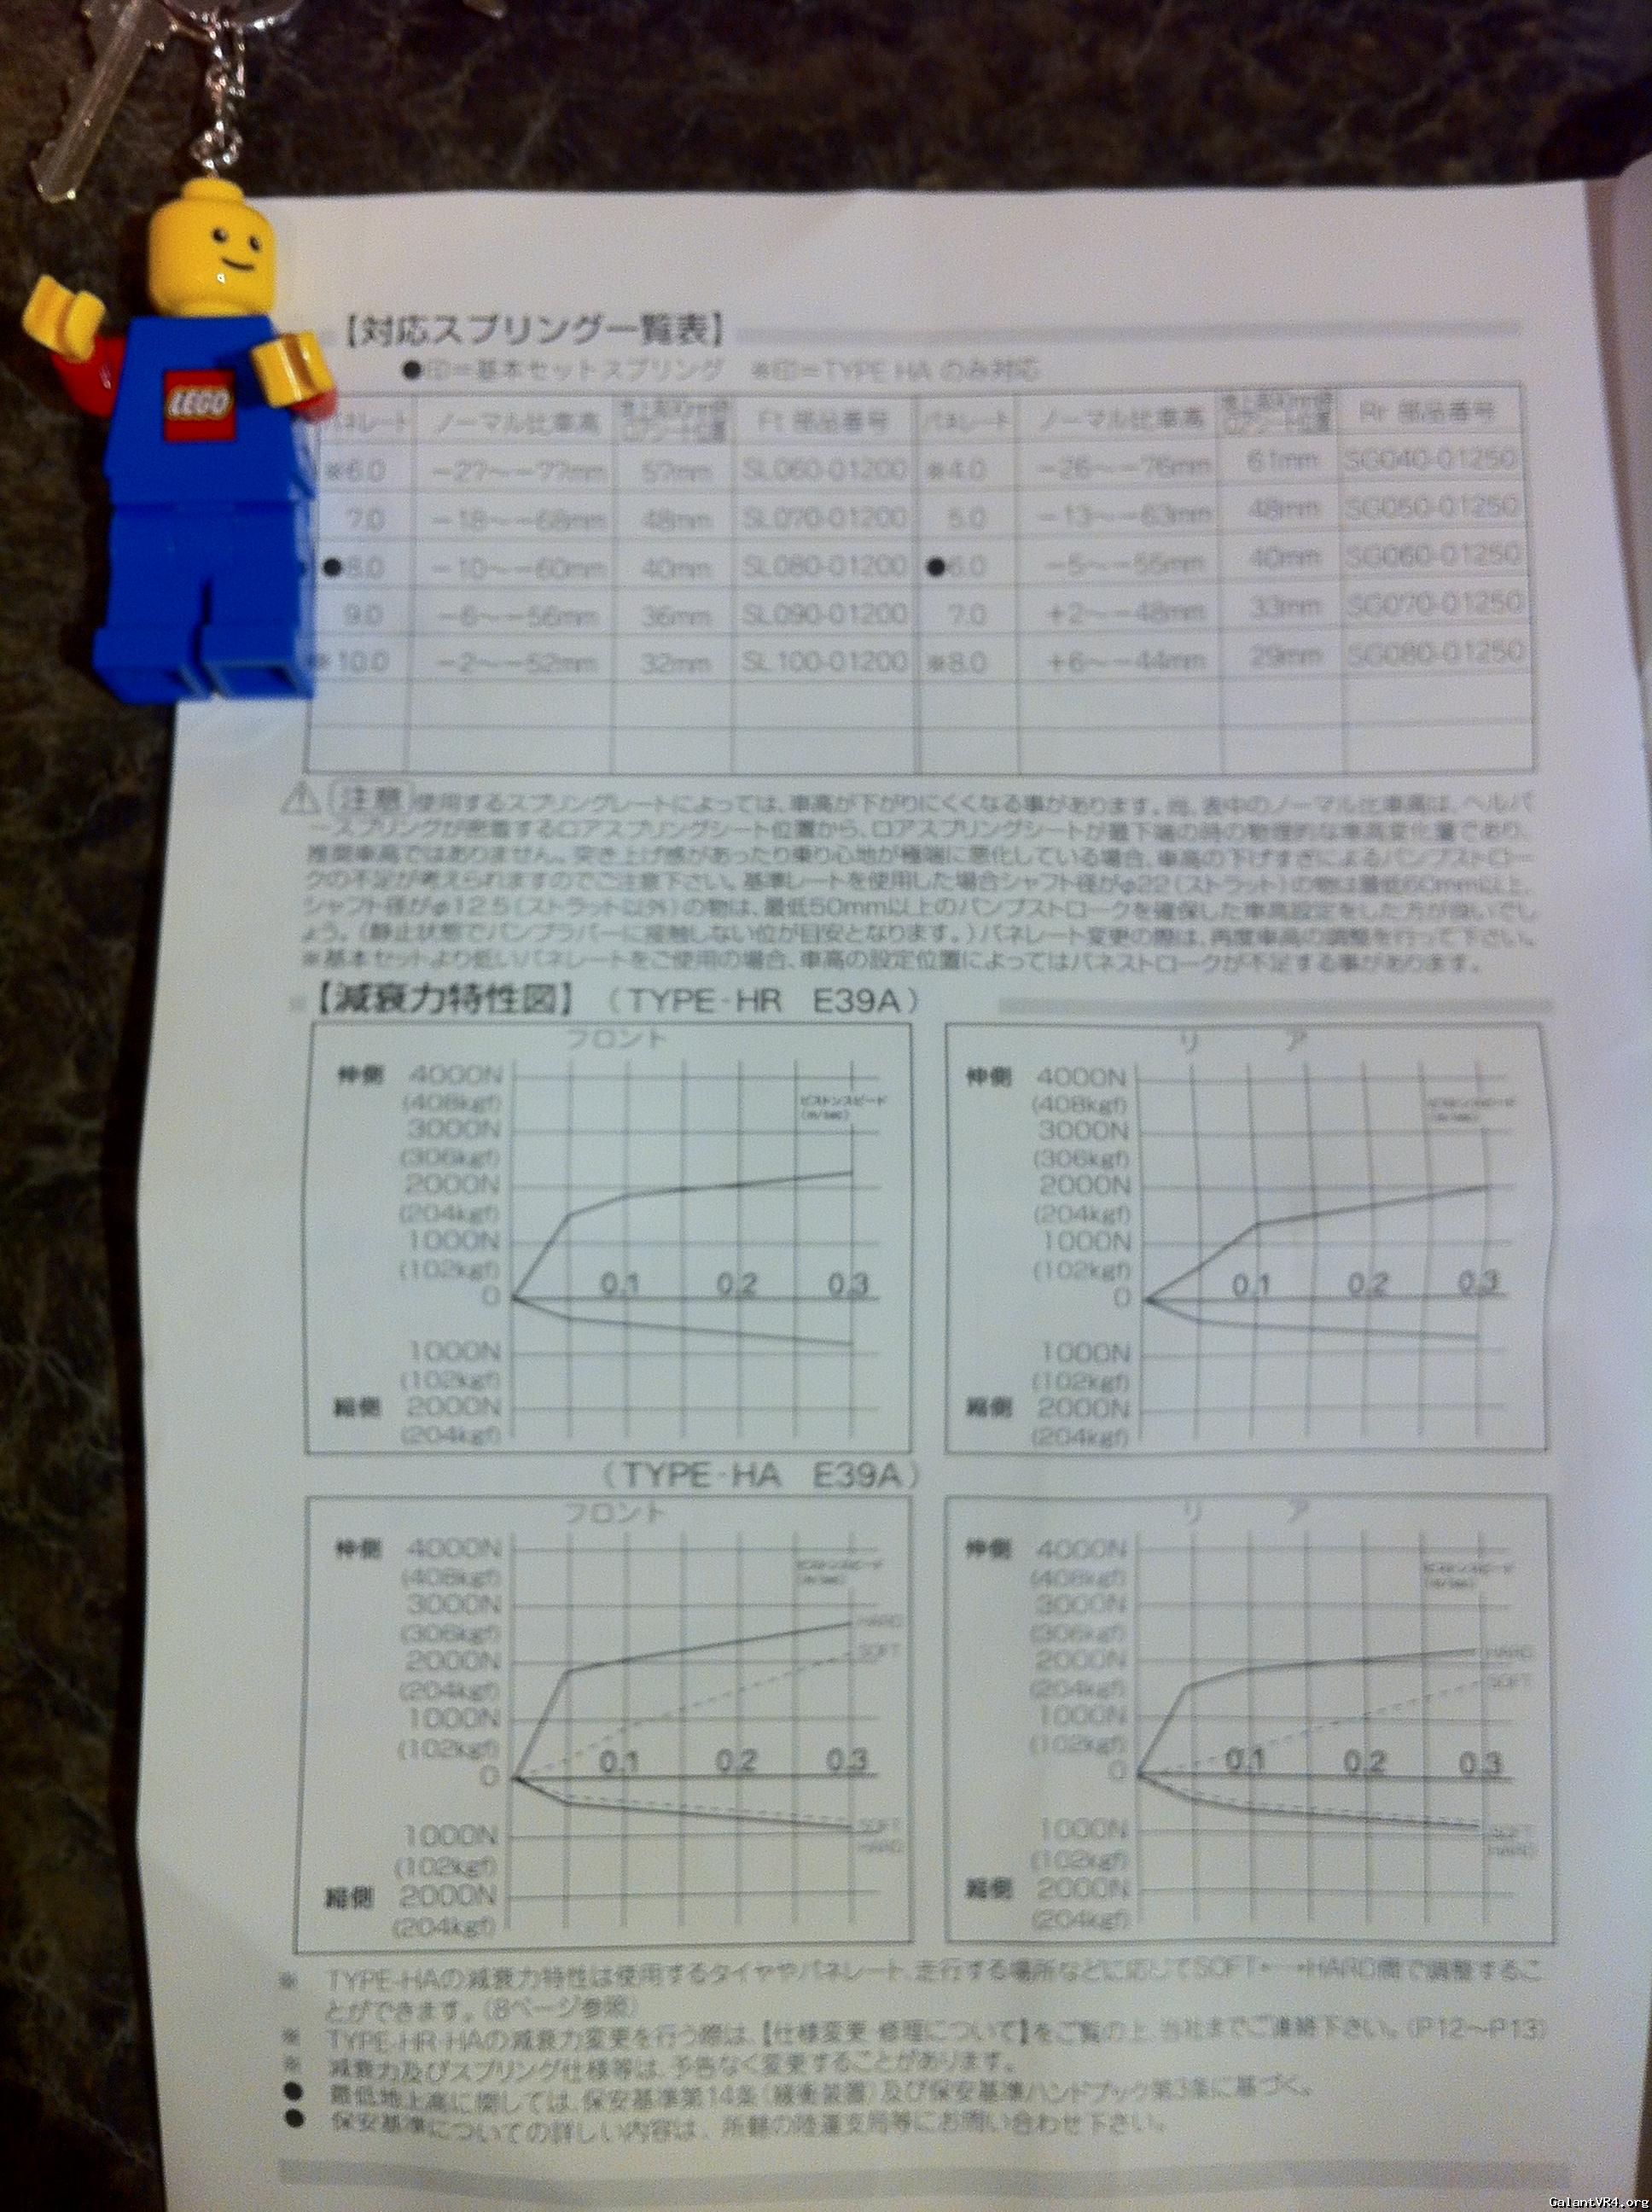 LEGO
【対応スプリング一覧表】
●印=基本セットスプリング ※印=TYPE HA のみ対応
バネレート ノーマル比車高 ロアシート位置 Ft 部品番号 バネレート ノーマル比車高 ロアシート位置 Rr 部品番号
※6.0 -27~-77mm 57mm SL060-01200 ※4.0 -26~-76mm 61mm SG040-01250
7.0 -18~-68mm 48mm SL070-01200 5.0 -13~-63mm 48mm SG050-01250
●8.0 -10~-60mm 40mm SL080-01200 ●6.0 -5~-55mm 40mm SG060-01250
9.0 -6~-56mm 36mm SL090-01200 7.0 +2~-48mm 33mm SG070-01250
※10.0 -2~-52mm 32mm SL100-01200 ※8.0 +6~-44mm 29mm SG080-01250
注意 使用するスプリングレートによっては、車高が下がりにくくなる事があります。尚、表中のノーマル比車高は、ヘルパ
ースプリングが密着するロアスプリングシート位置から、ロアスプリングシートが最下端の時の物理的な車高変化量であり、
推奨車高ではありません。突き上げ感があったり乗り心地が極端に悪化している場合、車高の下げすぎによるバンプストロー
クの不足が考えられますのでご注意下さい。基準レートを使用した場合シャフト径がφ22(ストラット)の物は最低60mm以上、
シャフト径がφ12.5(ストラット以外)の物は、最低50mm以上のバンプストロークを確保した車高設定をした方が良いでし
ょう。(静止状態でバンプラバーに接触しない位が目安となります。)バネレート変更の際は、再度車高の調整を行って下さい。
※基本セットより低いバネレートをご使用の場合、車高の設定位置によってはバネストロークが不足する事があります。
※【減衰力特性図】 (TYPE-HR E39A)
フロント
伸側 4000N
(408kgf)
ピストンスピード
(m/sec)
3000N
(306kgf)
2000N
(204kgf)
1000N
(102kgf)
0 0.1 0.2 0.3
1000N
(102kgf)
縮側 2000N
(204kgf)
リア
伸側 4000N
(408kgf)
ピストンスピード
(m/sec)
3000N
(306kgf)
2000N
(204kgf)
1000N
(102kgf)
0 0.1 0.2 0.3
1000N
(102kgf)
縮側 2000N
(204kgf)
(TYPE-HA E39A)
フロント
伸側 4000N
(408kgf)
ピストンスピード
(m/sec)
3000N
(306kgf)
HARD
SOFT
2000N
(204kgf)
1000N
(102kgf)
0 0.1 0.2 0.3
SOFT
HARD
1000N
(102kgf)
縮側 2000N
(204kgf)
リア
伸側 4000N
(408kgf)
ピストンスピード
(m/sec)
3000N
(306kgf)
HARD
SOFT
2000N
(204kgf)
1000N
(102kgf)
0 0.1 0.2 0.3
SOFT
HARD
1000N
(102kgf)
縮側 2000N
(204kgf)
※ TYPE-HAの減衰力特性は使用するタイヤやバネレート、走行する場所などに応じてSOFT←→HARD間で調整するこ
とができます。(8ページ参照)
※ TYPE-HR・HAの減衰力変更を行う際は、【仕様変更・修理について】をご覧の上、当社までご連絡下さい。(P12~P13)
※ 減衰力及びスプリング仕様等は、予告なく変更することがあります。
● 最低地上高に関しては、保安基準第14条(緩衝装置)及び保安基準ハンドブック第3条に基づく。
● 保安基準についての詳しい内容は、所轄の陸運支局等にお問い合わせ下さい。
GalantVR4.org